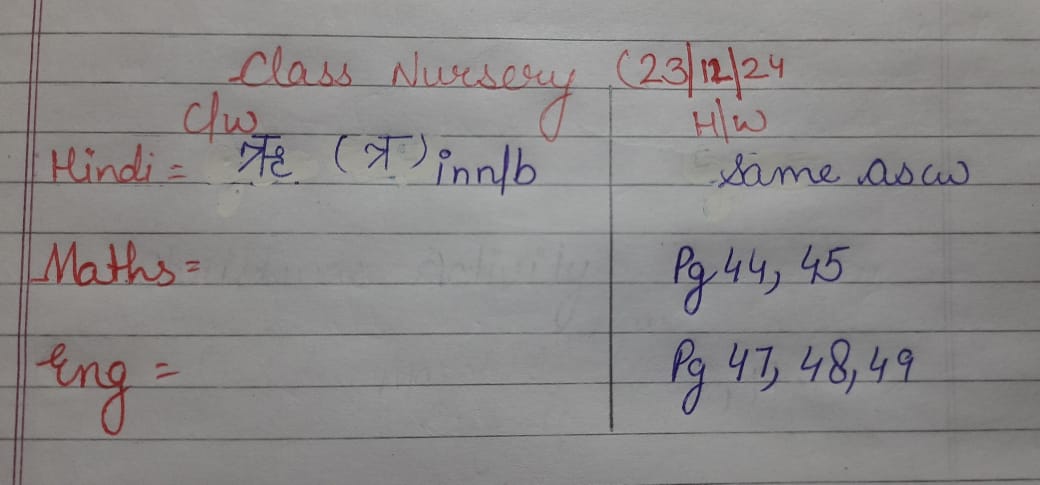 Class Nursery (23/12/24
C/W H/W
Hindi = ऋ (ऋ) in n/b same as cw
Maths = Pg 44, 45
Eng = Pg 47, 48, 49